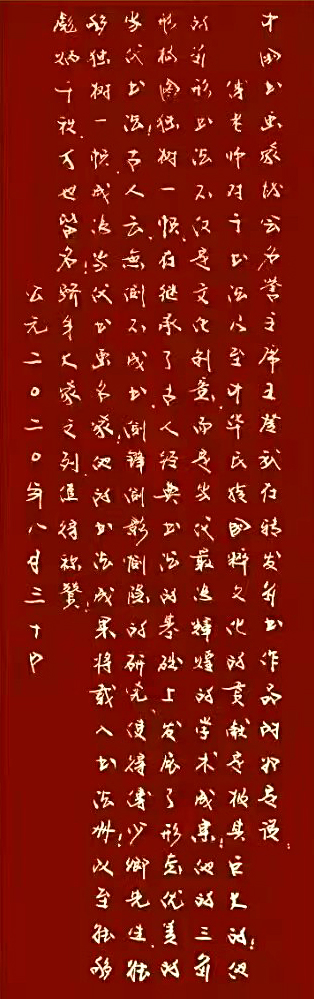 中国书画家协会名誉主席王登武在转发则书作品时却是说：
傅老师对于书法乃至中华民族国粹文化的贡献是极其巨大的！他
的箭形书法不仅是文化创意，而是当代最造辉煌的学术成果，他的三角
形构图独树一帜，在继承了古人经典书法的基础上发展了形态优美的
当代书法！古人云：無倒不成书，倒锋倒影倒隐的研究，使得傅少卿先生能
够独树一帜，成为当代书画名家！他的书法成果将载入书法史册！以至能够
彪炳千秋，万世皆名！跻身大家之列，值得称赞！
公元二〇二〇年八月三十日